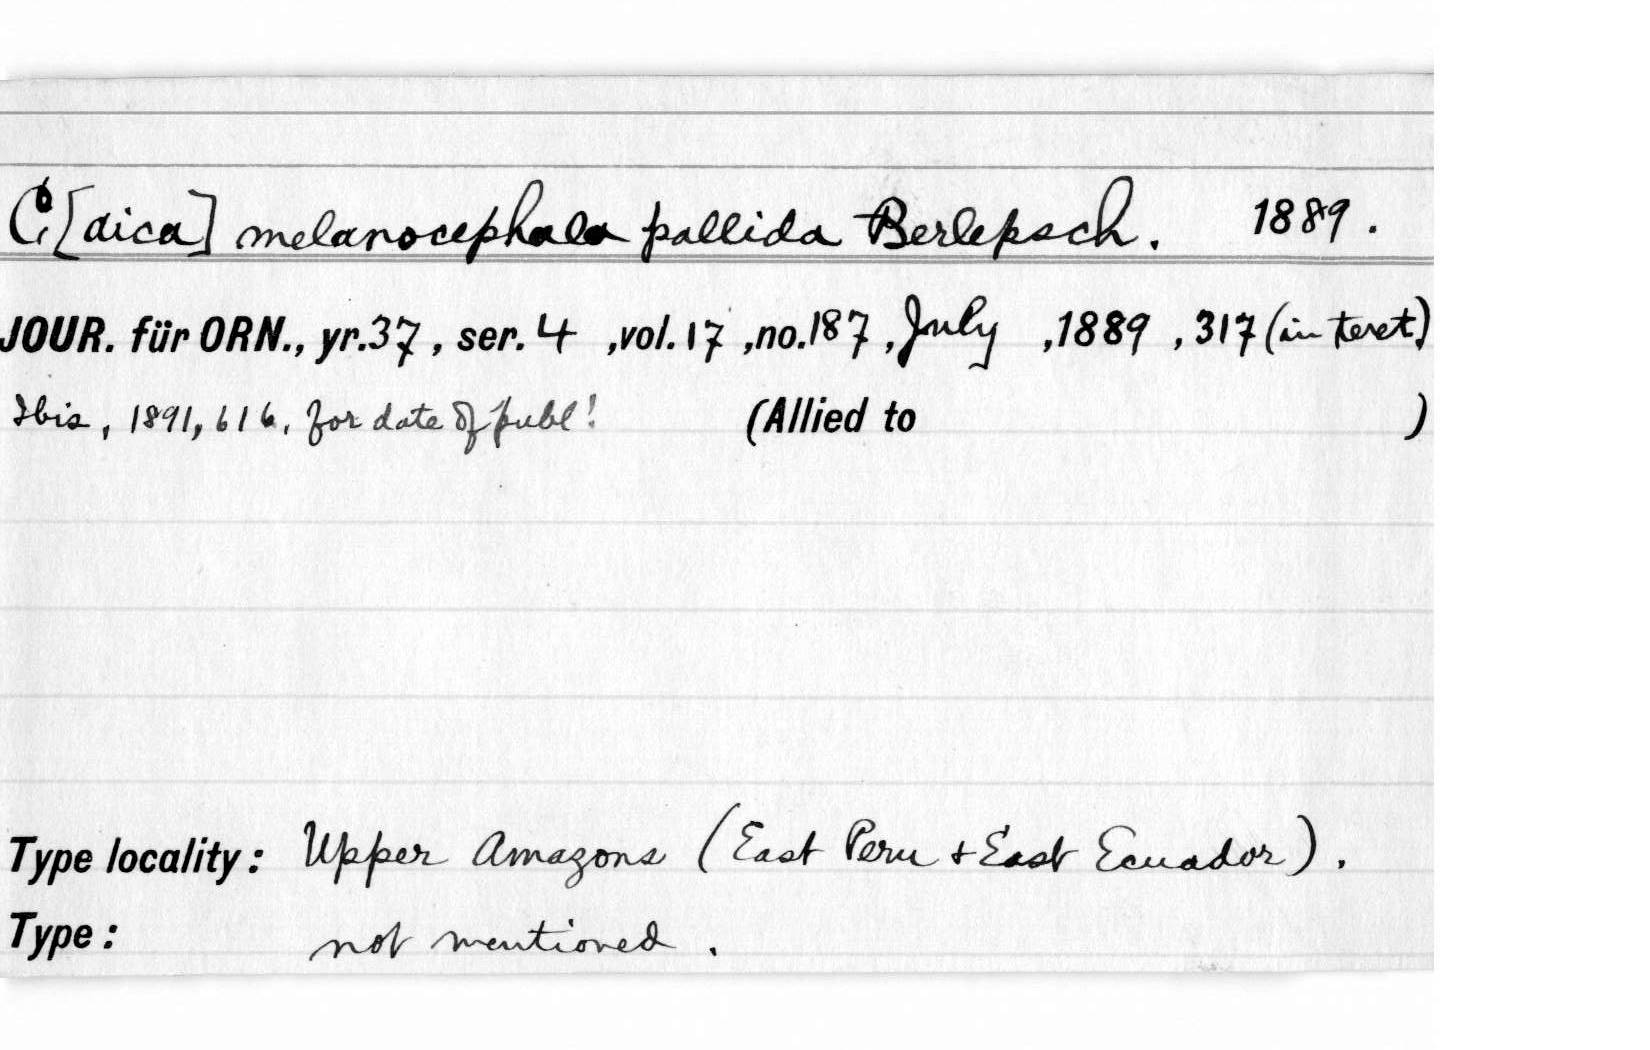 C.[aica] melanocephala pallida Berlepsch. 1889.
JOUR. für ORN., yr.37, ser. 4 ,vol. 17 ,no.187 , July ,1889 , 317 (in text)
Ibis, 1891, 616, for date of publ!
(Allied to )
Type locality: Upper Amazons (East Peru + East Ecuador).
Type: not mentioned.